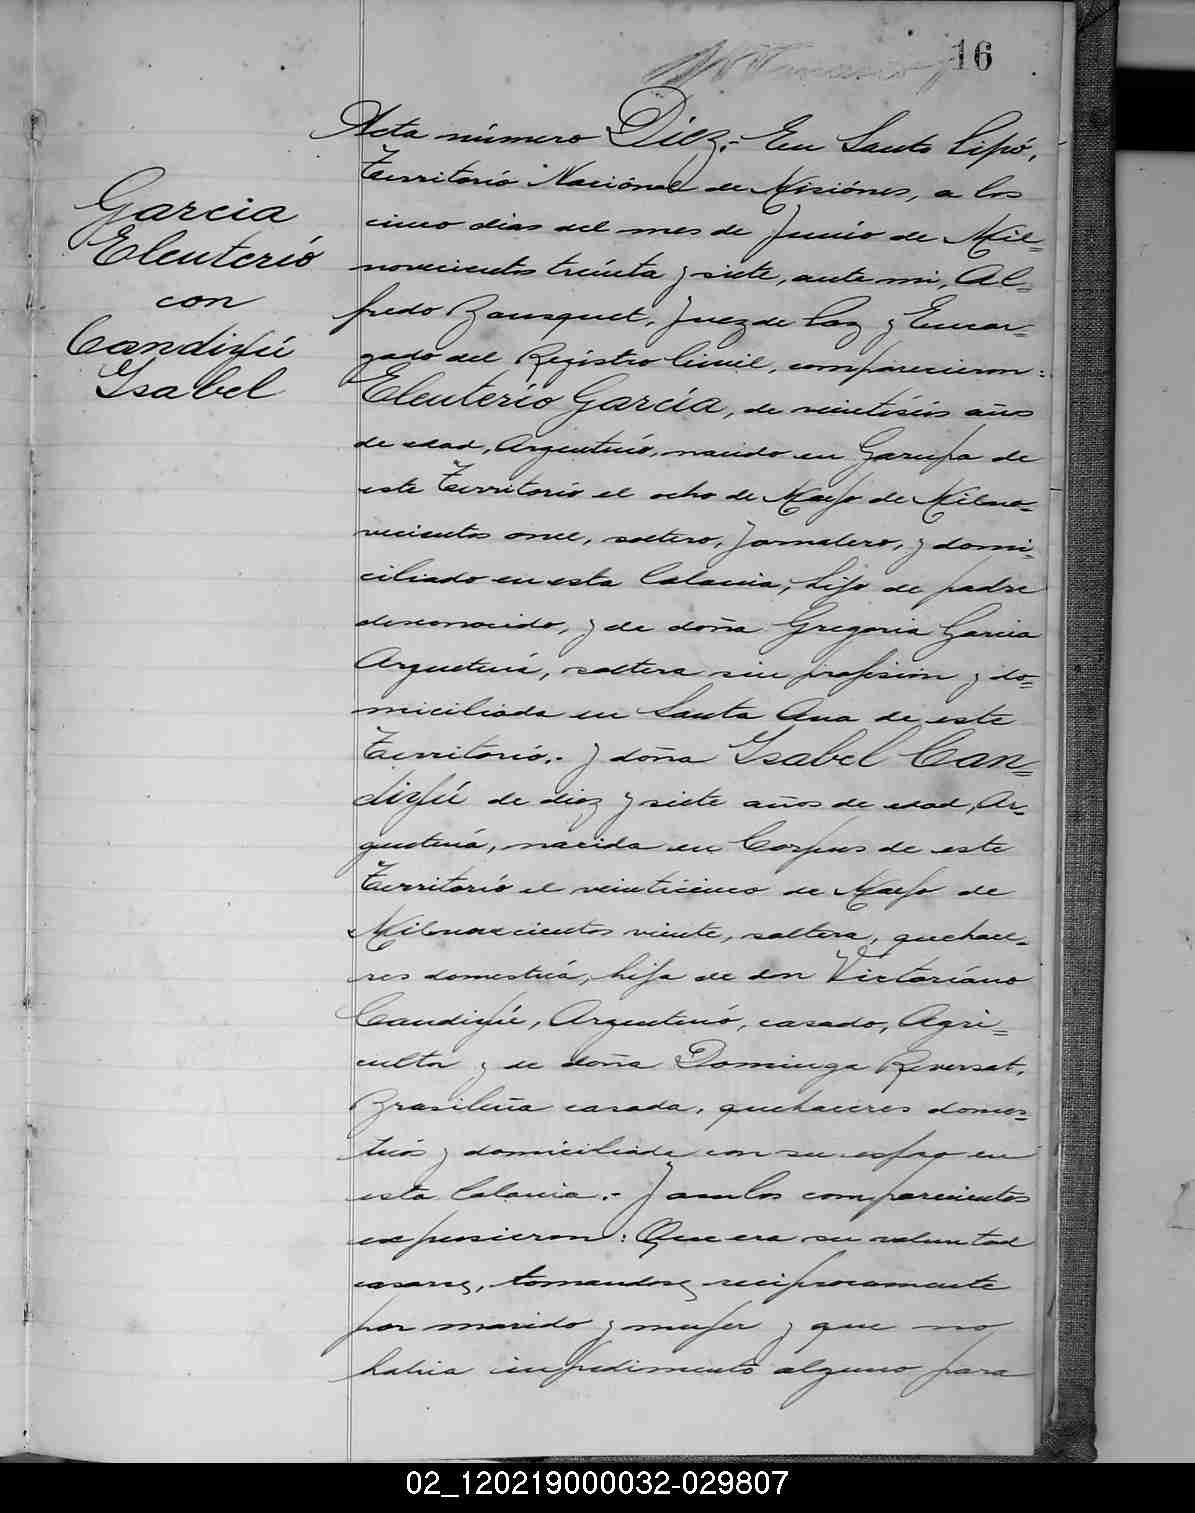 16
Acta número Diez.- En Santo Pipó,
Territorio Nacional de Misiónes, a los
cinco dias del mes de Junio de Mil=
novecientos treinta y siete, ante mi, Al=
fredo Bousquet, Juez de Paz y Encar=
gado del Registro Civil, comparecieron:
Eleuterio García, de veintiseis años
de edad, Argentino, nacido en Garupa de
este Territorio el ocho de Mayo de Milno=
vecientos once, soltero, Jornalero, y domi=
ciliado en esta Colonia, hijo de padre
desconocido, y de doña Gregoria Garcia
Argentina, soltera sin profesion y do=
miciliada en Santa Ana de este
Territorio.- y doña Ysabel Can=
diyú de diez y siete años de edad, Ar=
gentina, nacida en Corpus de este
Territorio el veinticinco de Mayo de
Milnovecientos veinte, soltera, quehace=
res domestica, hija de don Victoriano
Candiyú, Argentino, casado, Agri=
cultor y de doña Dominga Reversat,
Brasileña casada, quehaceres domes=
ticos y domiciliada con su espozo en
esta Colonia.- Y ambos comparecientes
expusieron: Que era su voluntad
casarse, tomandose reciprocamente
por marido y mujer y que no
habia impedimento alguno para
Garcia
Eleuterio
con
Candiyú
Ysabel
02_120219000032-029807